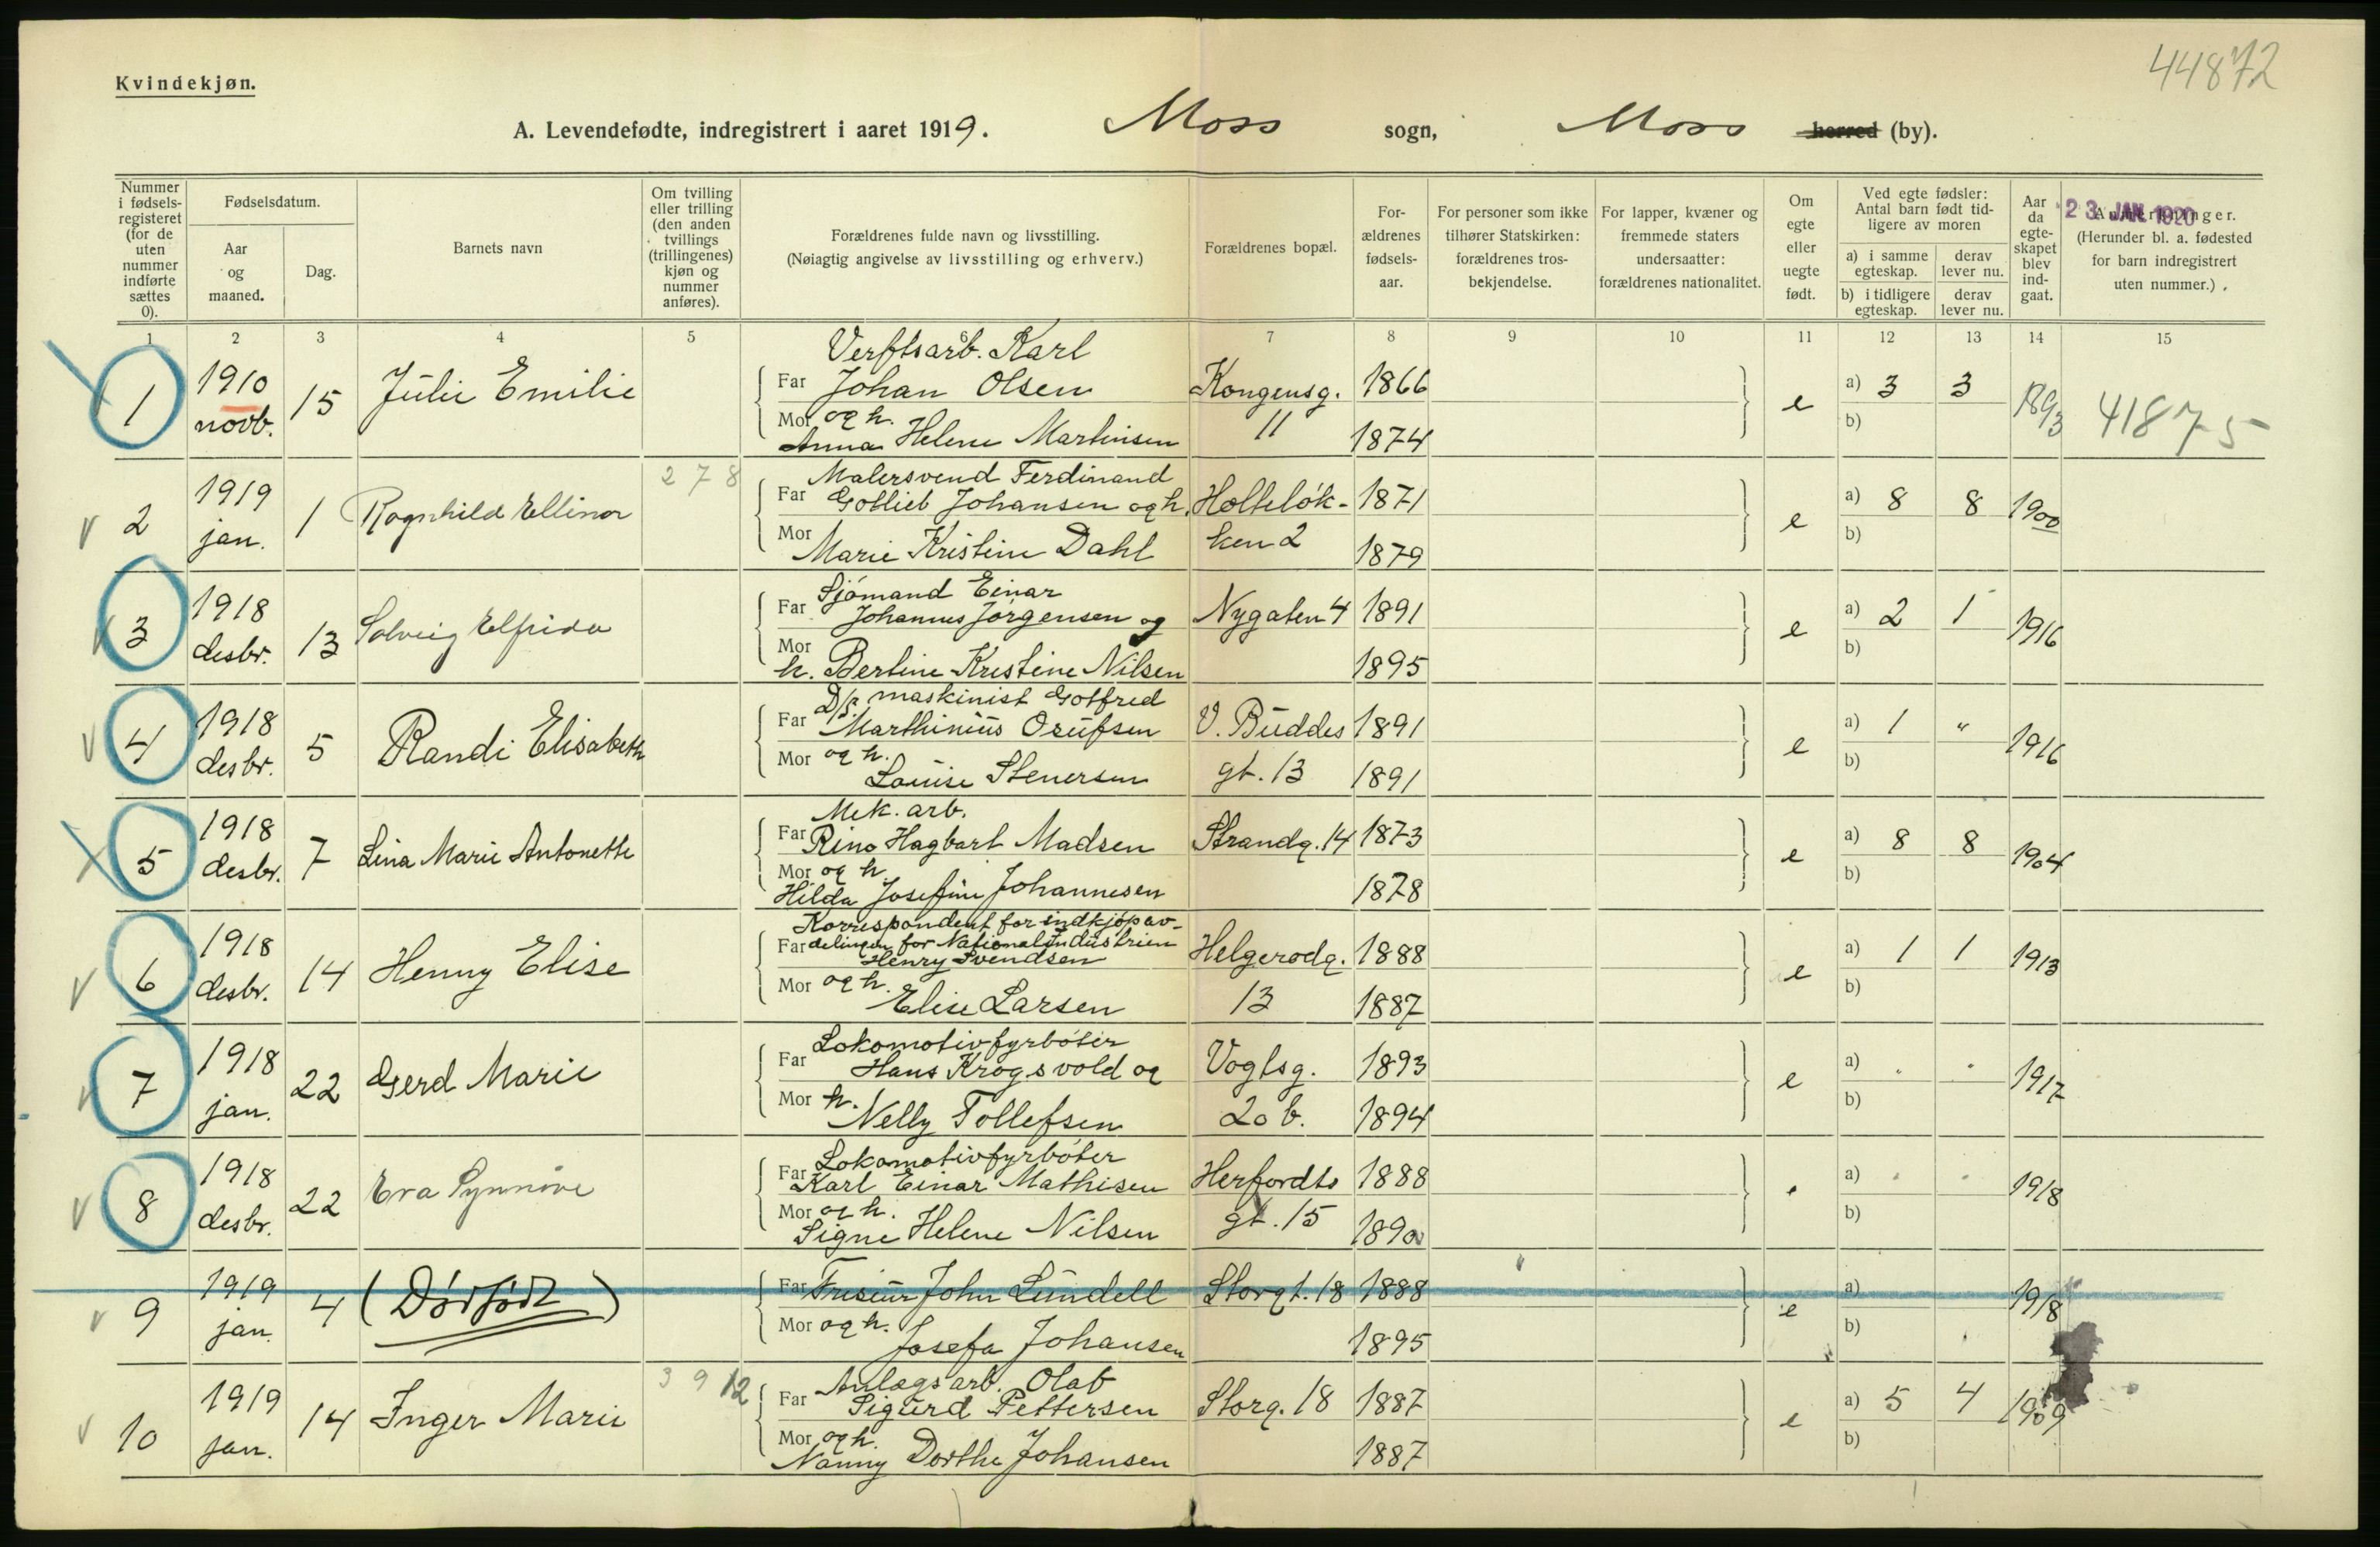 44872
Kvindekjøn.
A. Levendefødte, indregistrert i aaret 1919. Moss sogn, Moss herred (by).
Nummer i fødsels-registeret (for de uten nummer indførte sættes 0).
Fødselsdatum.
Aar og maaned.
Dag.
Barnets navn
Om tvilling eller trilling (den anden tvillings (trillingenes) kjøn og nummer anføres).
Forældrenes fulde navn og livsstilling.
(Nøiagtig angivelse av livsstilling og erhverv.)
Forældrenes bopæl.
For-ældrenes fødsels-aar.
For personer som ikke tilhører Statskirken: forældrenes tros-bekjendelse.
For lapper, kvæner og fremmede staters undersaatter: forældrenes nationalitet.
Om egte eller uegte født.
Ved egte fødsler: Antal barn født tid-ligere av moren
a) i samme egteskap. derav lever nu.
b) i tidligere egteskap. derav lever nu.
Aar da egte-skapet blev ind-gaat.
23 JAN. 1920
Anmerkninger.
(Herunder bl. a. fødested for barn indregistrert uten nummer.)
1 2 3 4 5 7 8 9 10 11 12 13 14 15
Verftsarb. Karl
1 1910 15 Julie Emilie Far Johan Olsen Kongensg. 1866 e a) 3 3 1893 41875
novb. Mor og h. 11 b)
Anna Helene Martinsen 1874
278
Malersvend Ferdinand
2 1919 1 Ragnhild Ellinor Far Gotlieb Johansen og h. Holteløk- 1871 e a) 8 8 1900
jan. Mor Marie Kristine Dahl ken 2 1879 b)
Sjømand Einar
3 1918 13 Solveig Elfrida Far Johannes Jørgensen og Nygaten 4 1891 e a) 2 1 1916
desbr. Mor h. Bertine Kristine Nilsen 1895 b)
D/s. maskinist Gotfred
4 1918 5 Randi Elisabeth Far Marthinius Orufsen V. Buddes 1891 e a) 1 " 1916
desbr. Mor og h. Louise Stenersen gt. 13 1891 b)
Mek. arb.
5 1918 7 Lina Marie Antonette Far Rino Hagbart Madsen Strandg. 14 1873 e a) 8 8 1904
desbr. Mor og h. b)
Hilda Josefine Johannesen 1878
Korrespondent for indkjøpav-
6 1918 14 Henny Elise Far delingen for Nationalindustrien Helgerødg. 1888 e a) 1 1 1913
Henry Svendsen
desbr. Mor og h. Elise Larsen 13 1887 b)
Lokomotivfyrbøter
7 1918 22 Gerd Marie Far Hans Krogsvold og Vogtsg. 1893 e a) " " 1917
jan. Mor h. Nelly Tollefsen 20 b. 1894 b)
Lokomotivfyrbøter
8 1918 22 Eva Synnøve Far Karl Einar Mathisen Herfordts 1888 a) 1918
desbr. Mor og h. gt. 15 b)
Signe Helene Nilsen 1890
9 1919 4 (Dødfødt) Far Frisør John Lundell Storgt. 18 1888 e a) 1918
jan. Mor og h. Josefa Johansen 1895 b)
3 9 12
Anlægsarb. Olaf
10 1919 14 Inger Marie Far Sigurd Pettersen Storg. 18 1887 e a) 5 4 1909
jan. Mor og h. b)
Nanny Dorthe Johansen 1887